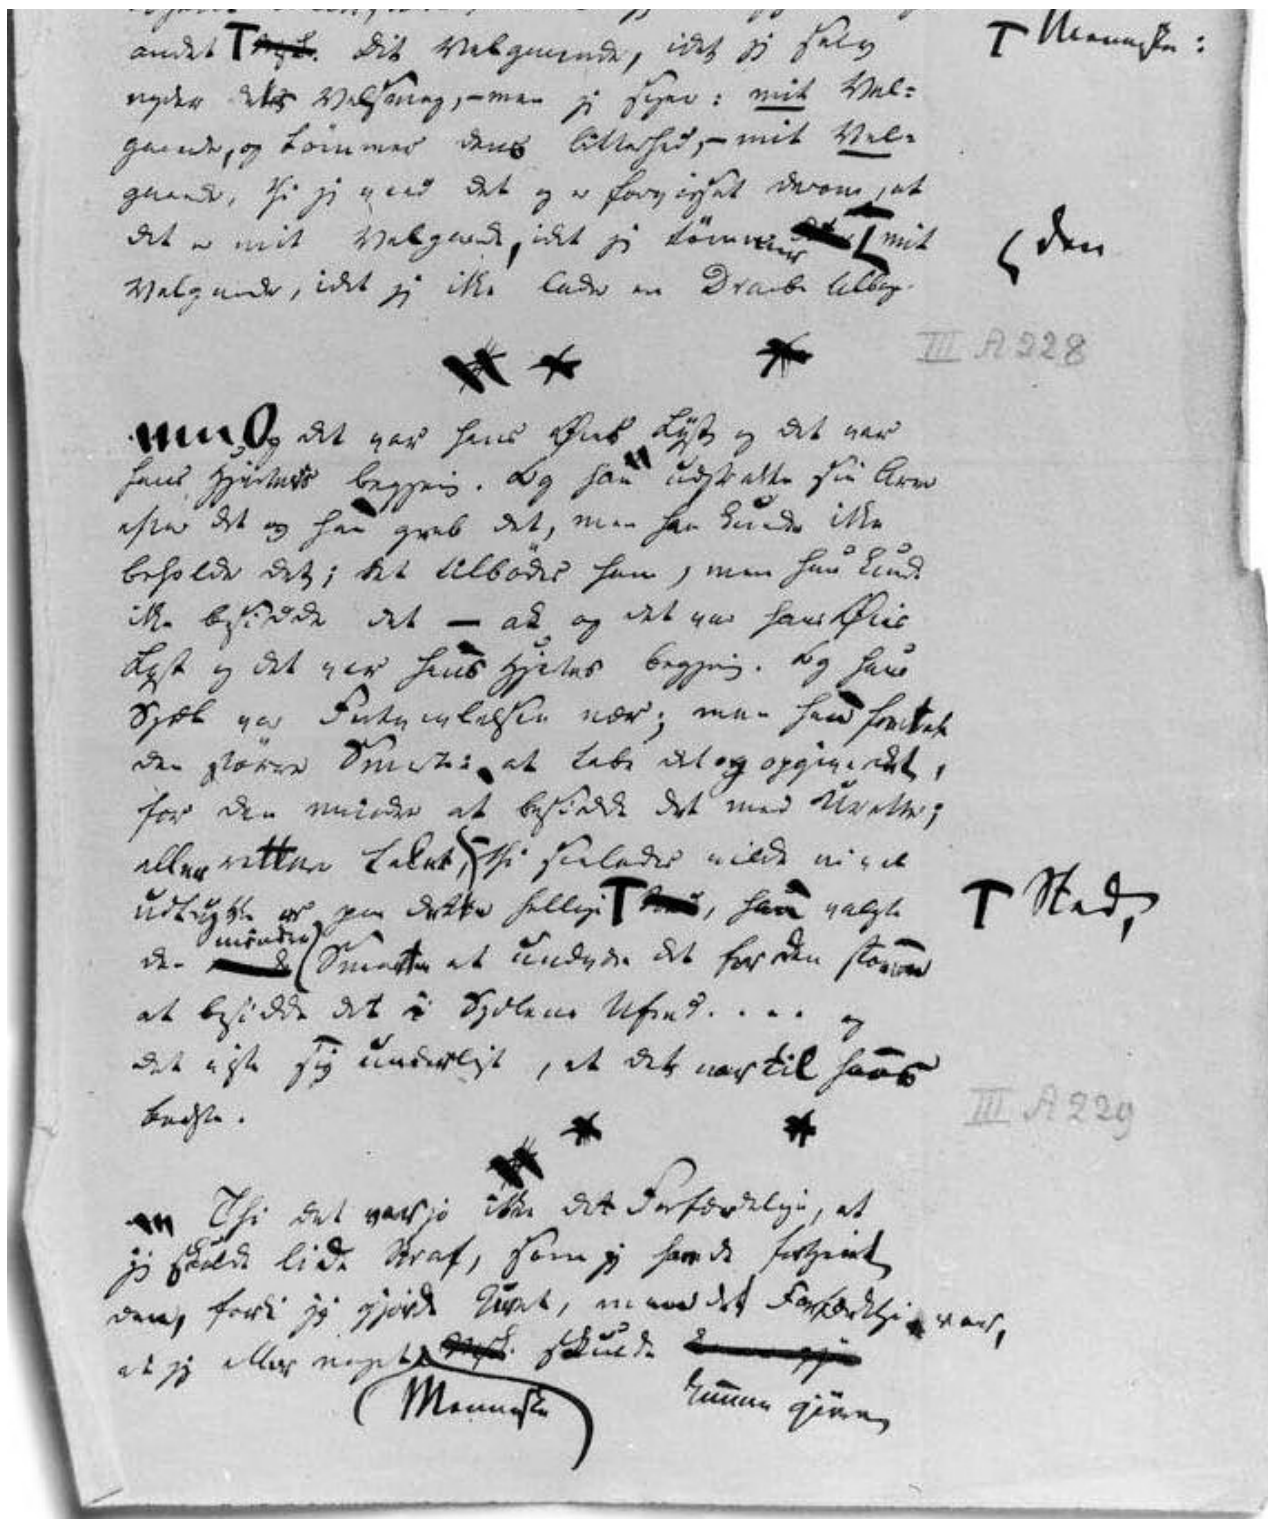 andet Msk. Dit Velgaaende, idet jeg selv
Menneske:
nyder dets Velsmag, – men jeg siger: mit Vel=
gaaende, og tømmer dens Bitterhed, – mit Vel=
gaaende, thi jeg veed det og er forvisset derom, at
det er mit Velgaaende, idet jeg tømmer mit
den
Velgaaende, idet jeg ikke lader en Draabe tilbage.
III A 228
Og det var hans Øies Lyst og det var
hans Hjertes Begjering. Og han udstrakte sin Arm
efter det og han greb det, men han kunde ikke
beholde det; det tilbødes ham, men han kunde
ikke besidde det – ak og det var hans Øies
Lyst og det var hans Hjertes Begjering. Og hans
Sjæl var Fortvivlelsen nær; men han foretrak
den større Smerte: at tabe det og opgive det,
for den mindre at besidde det med Urette;
eller rettere talet, thi saaledes vilde vi vel
udtrykke os paa dette hellige Sted, han valgte
den mindre Smerte at undvære det for den større
at besidde det i Sjælens Ufred . . . . og
det viste sig underligt, at det var til hans
Bedste.
III A 229
Thi det var jo ikke det Forfærdelige, at
jeg skulde lide Straf, som jeg havde fortjent
den, fordi jeg gjorde Uret, men det Forfærdelige var,
at jeg eller noget Msk. skulde
Menneske kunne gjøre